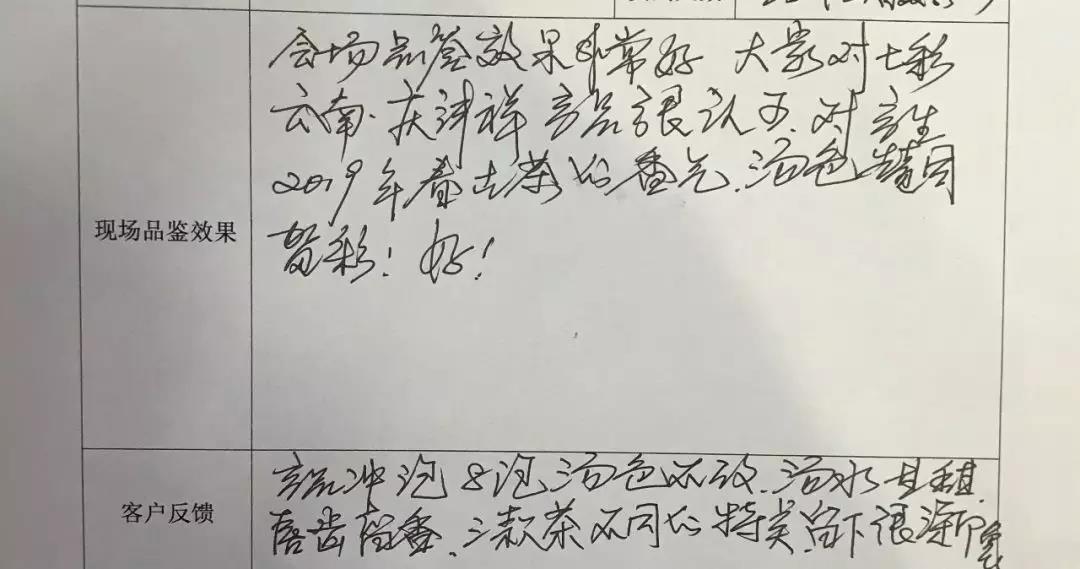 会场品鉴效果非常好 大家对七彩
云南·庆沣祥产品很认可、对
2019年春古茶的香气、汤色赞同
喝彩！好！
现场品鉴效果
产品冲泡8泡汤色不改、汤水甘甜、
客户反馈
唇齿留香、三款茶不同的特点留下很深印象